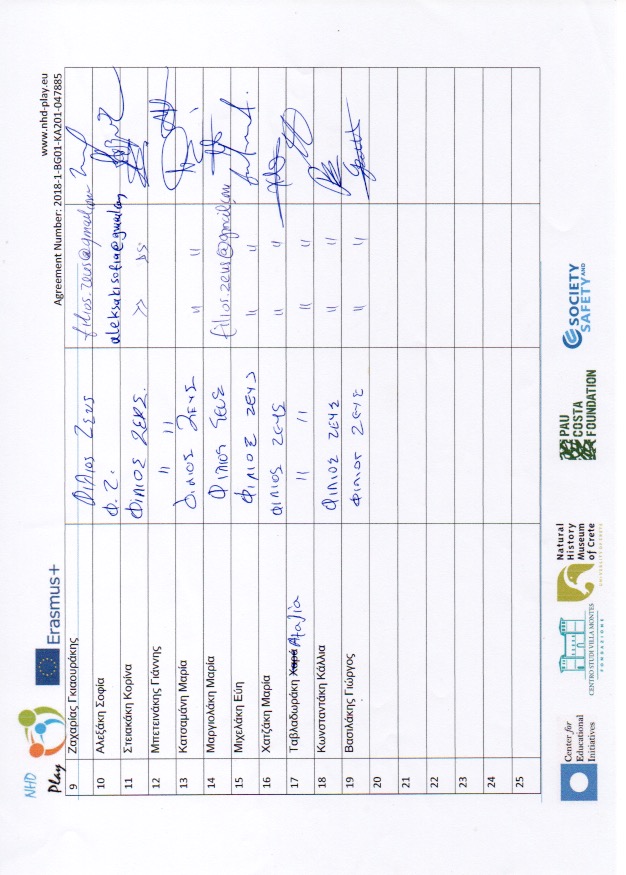 NHD
Play
Erasmus+
www.nhd-play.eu
Agreement Number: 2018-1-BG01-KA201-047885
9 Ζαχαρίας Γκιαουράκης Φίλιος Ζευς filios.zeus@gmail.com
10 Αλεξάκη Σοφία Φ. Ζ. aleksakisofia@gmail.com
11 Στειακάκη Κορίνα Φίλιος Ζευς. >> >>
12 Μπετεινάκης Γιάννης " "
13 Κατσαμάνη Μαρία Φίλιος Ζευς " "
14 Μαργιολάκη Μαρία Φίλιος Ζευς filios.zeus@gmail.com
15 Μιχελάκη Εύη Φιλιος Ζευς " "
16 Χατζάκη Μαρία Φιλιος Ζευς " "
17 Ταβλαδωράκη Χαρά Αταλία " " " "
18 Κωνσταντάκη Κάλλια Φιλιος Ζευς " "
19 Βασιλάκης Γιώργος Φιλιος Ζευς " "
20
21
22
23
24
25
Center for
Educational
Initiatives
CENTRO STUDI VILLA MONTES
FONDAZIONE
Natural
History
Museum
of Crete
UNIVERSITY OF CRETE
PAU
COSTA
FOUNDATION
SOCIETY
AND
SAFETY